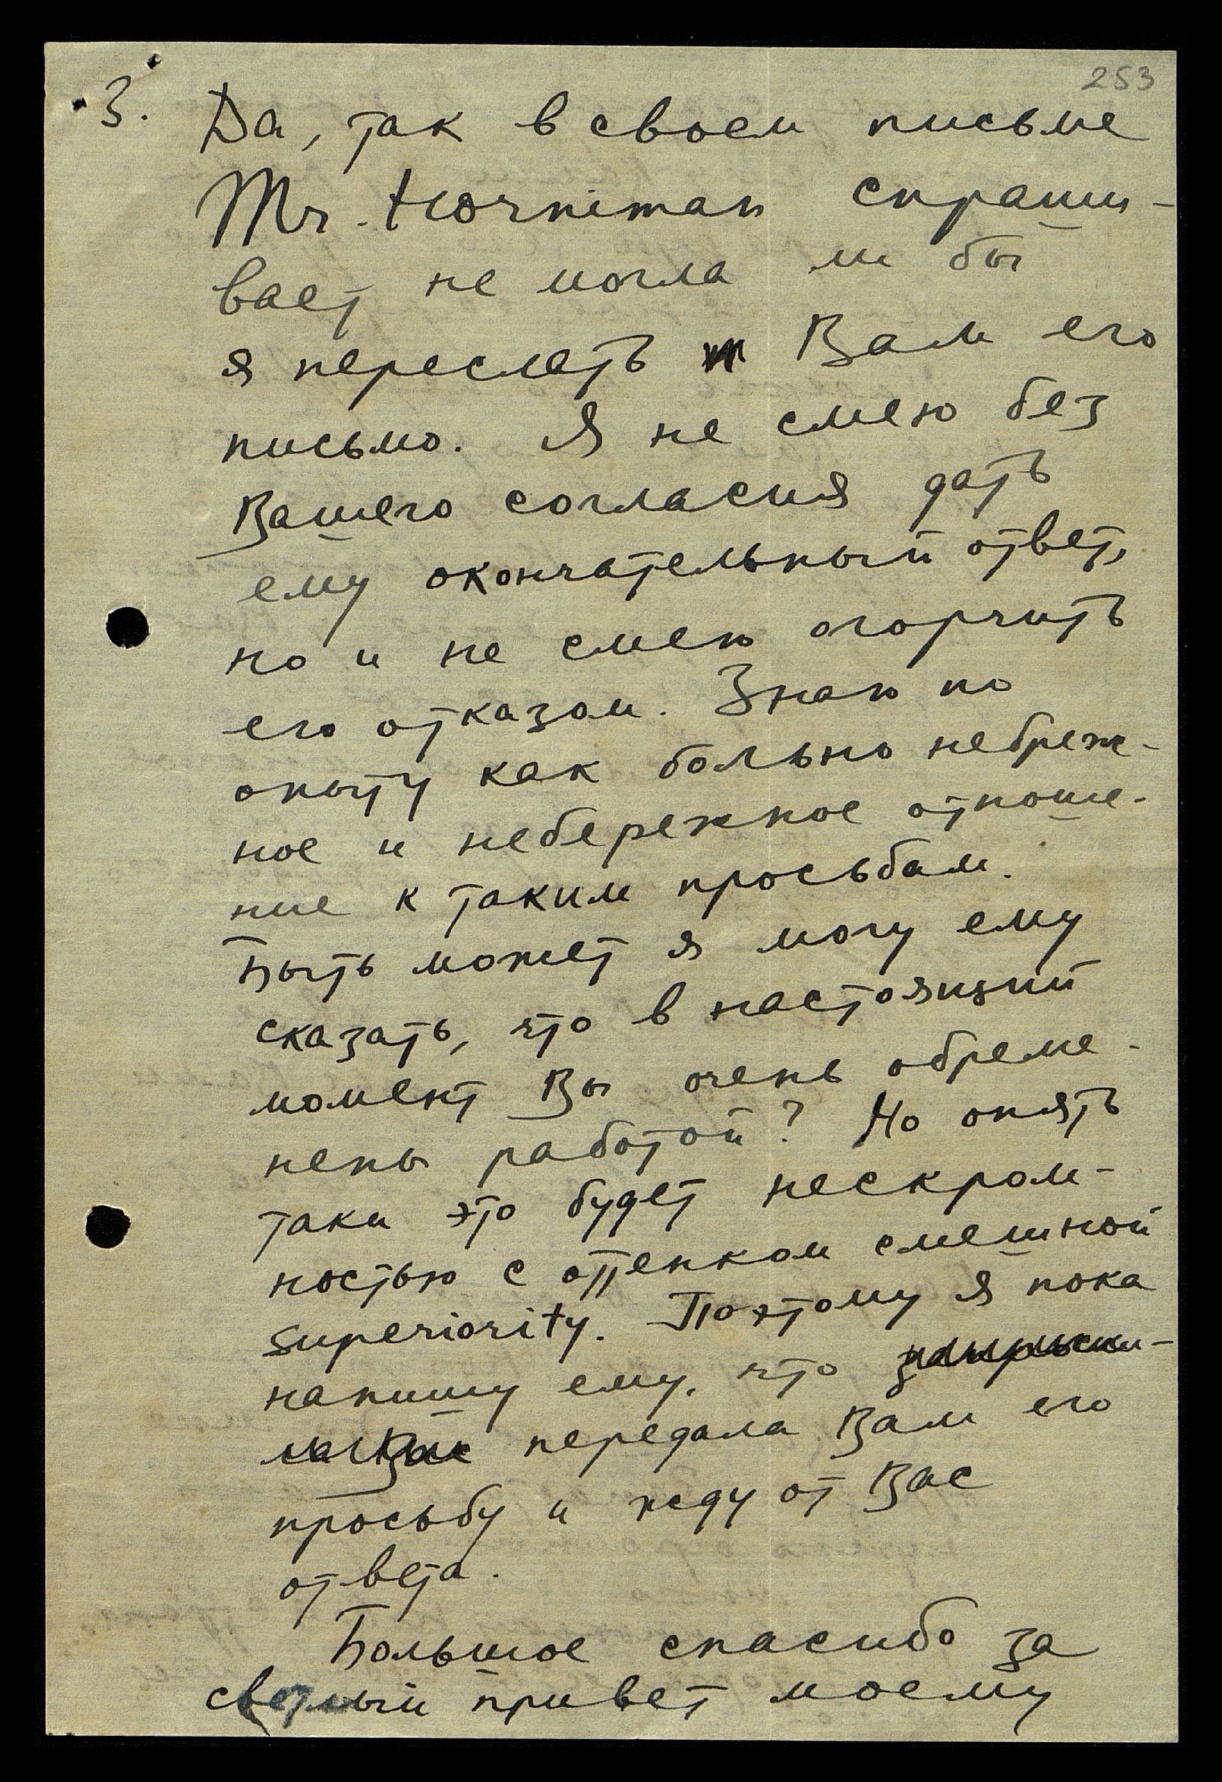 253
3. Да, так в своем письме
Mr. Horniman спраши-
вает не могла ли бы
я переслать Вам его
письмо. Я не смею без
Вашего согласия дать
ему окончательный ответ,
но и не смею огорчить
его отказом. Знаю по
опыту как больно небреж-
ное и небережное отноше-
ние к таким просьбам.
Быть может я могу ему
сказать, что в настоящий
момент Вы очень обреме-
нены работой? Но опять
таки это будет нескром-
ностью с оттенком смешной
superiority. Поэтому я пока
напишу ему, что
передала Вам его
просьбу и жду от Вас
ответа.
Большое спасибо за
светлый привет моему